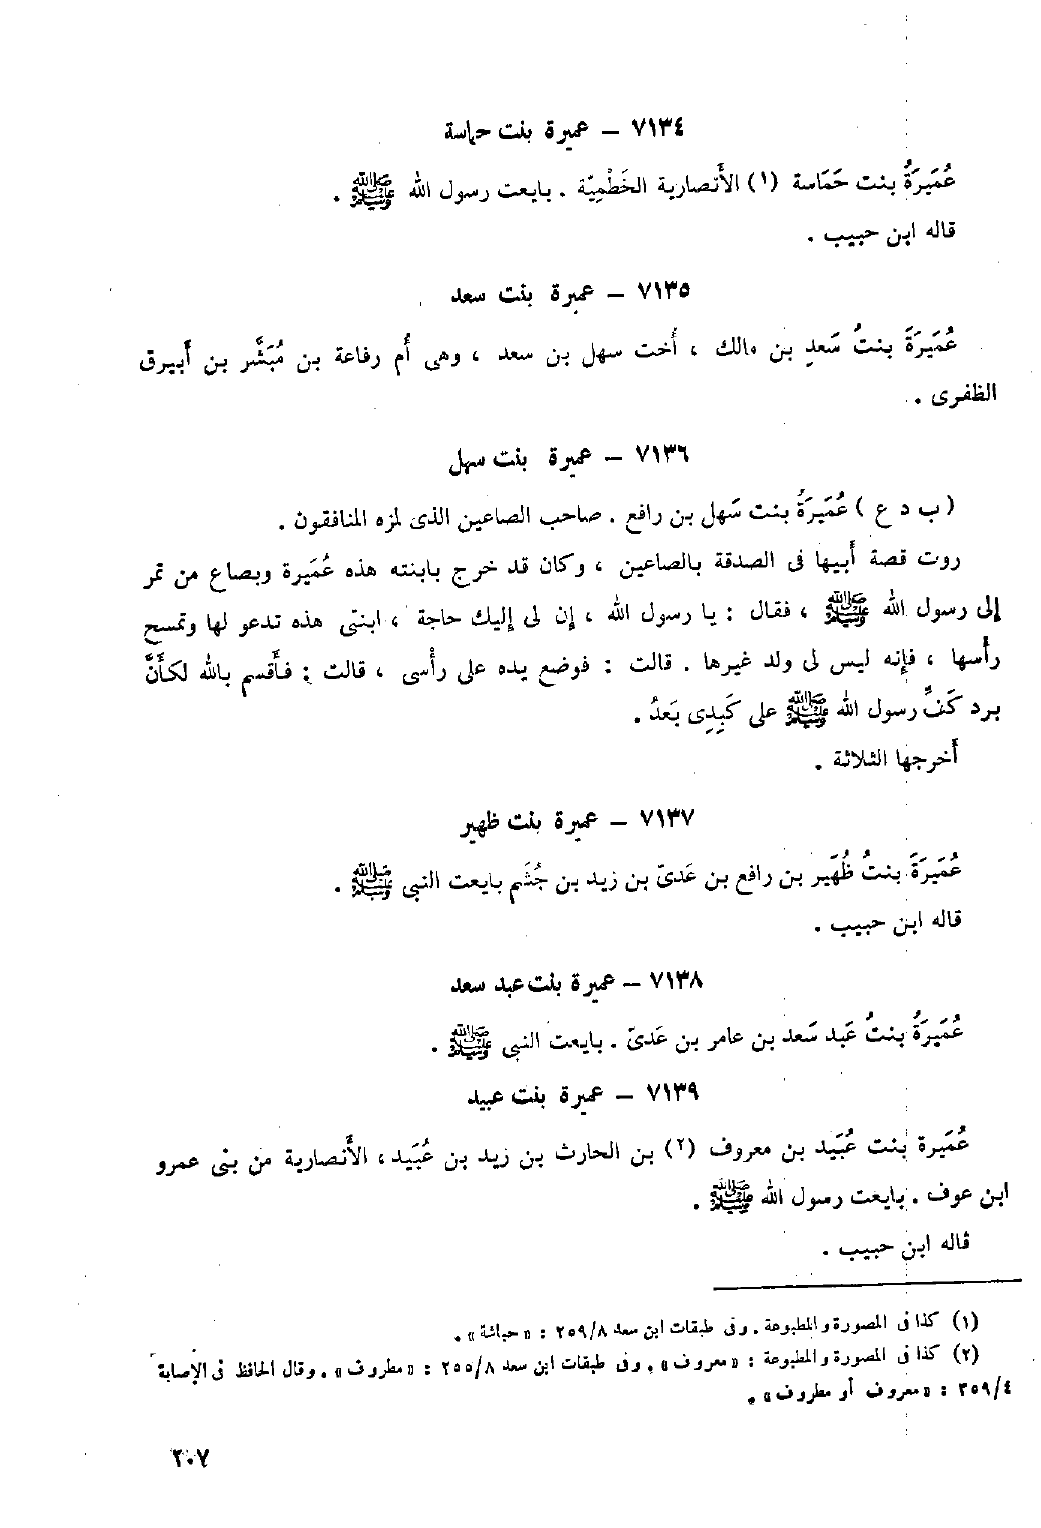 ٧١٣٤ – عميرة بنت حماسة
عُمَيرَةُ بنت حَمَاسة (١) الأَنصارية الخَطْمِيّة . بايعت رسول الله ﷺ .
قاله ابن حبيب .
٧١٣٥ – عميرة بنت سعد
عُمَيرَةَ بنتُ سَعدِ بن مالك ، أُخت سهل بن سعد ، وهى أُم رفاعة بن مُبَشَّر بن أَبيرق
الظفرى .
٧١٣٦ – عميرة بنت سهل
( ب د ع ) عُمَيرَةُ بنت سَهل بن رافع . صاحب الصاعين الذى لمزه المنافقون .
روت قصة أَبيها فى الصدقة بالصاعين ، وكان قد خرج بابنته هذه عُمَيرة وبصاع من تمر
إِلى رسول الله ﷺ ، فقال : يا رسول الله ، إِن لى إِليك حاجة ، ابنتى هذه تدعو لها وتمسح
رأْسها ، فإِنه ليس لى ولد غيرها . قالت : فوضع يده على رأْسى ، قالت : فأَقسم بالله لكأَنَّ
برد كَفِّ رسول الله ﷺ على كَبِدِى بَعدُ .
أَخرجها الثلاثة .
٧١٣٧ – عميرة بنت ظهير
عُمَيرَةَ بنتُ ظُهَير بن رافع بن عَدىّ بن زيد بن جُشَم بايعت النبى ﷺ .
قاله ابن حبيب .
٧١٣٨ – عميرة بنت عبد سعد
عُمَيرَةُ بنتُ عَبد سَعد بن عامر بن عَدىّ . بايعت النبى ﷺ .
٧١٣٩ – عميرة بنت عبيد
عُمَيرة بنت عُبَيد بن معروف (٢) بن الحارث بن زيد بن عُبَيد ، الأَنصارية من بنى عمرو
ابن عوف . بايعت رسول الله ﷺ .
قاله ابن حبيب .
(١) كذا فى المصورة والمطبوعة . وفى طبقات ابن سعد ٢٥٩/٨ : «حباشة» .
(٢) كذا فى المصورة والمطبوعة : «معروف» . وفى طبقات ابن سعد ٢٥٥/٨ : «مطروف» . وقال الحافظ فى الإصابة
٣٥٩/٤ : «معروف أو مطروف» .
٢٠٧